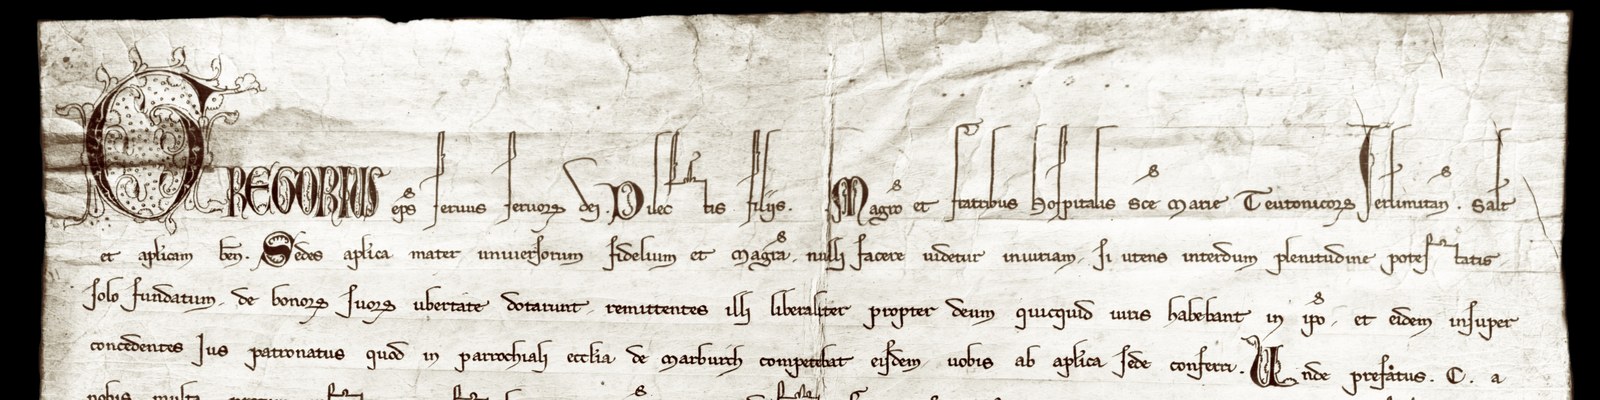 GREGORIUS eps seruus seruoꝝ dei. Dilectis filiis. Magro et fratribus Hospitalis sce Marie Teutonicoꝝ Ierlimitan. Salt
et aplicam ben. Sedes aplica mater uniuersorum fidelium et magra. nulli facere uidetur iniuriam. si utens interdum plenitudine potestatis
solo fundatum. de bonoꝝ suoꝝ ubertate dotarunt. remittentes illi liberaliter propter deum quicquid iuris habebant in ipo. et eidem insuper
concedentes ius patronatus quod in parrochiali ecclia de Marburch competebat eisdem uobis ab aplica sede conferri. Unde prefatus. C. a
nobis